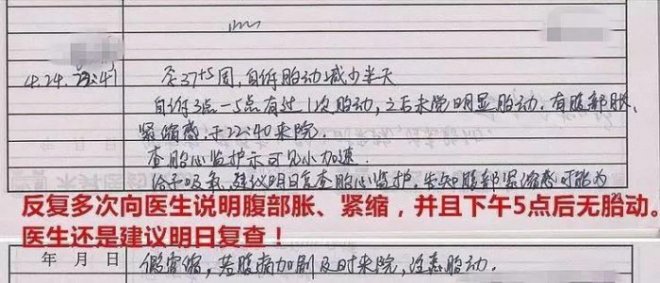 4.24. 22:41 孕37+5周,自诉胎动减少半天
自诉3点-5点有过1次胎动,之后未觉明显胎动.有腹部胀、
紧缩感,于22:40来院.
查胎心监护示可见小加速.
给予吸氧,建议明日复查胎心监护.告知腹部紧缩感可能为
反复多次向医生说明腹部胀、紧缩,并且下午5点后无胎动。
医生还是建议明日复查!
年 月 日 假宫缩,若腹痛加剧及时来院,注意胎动.